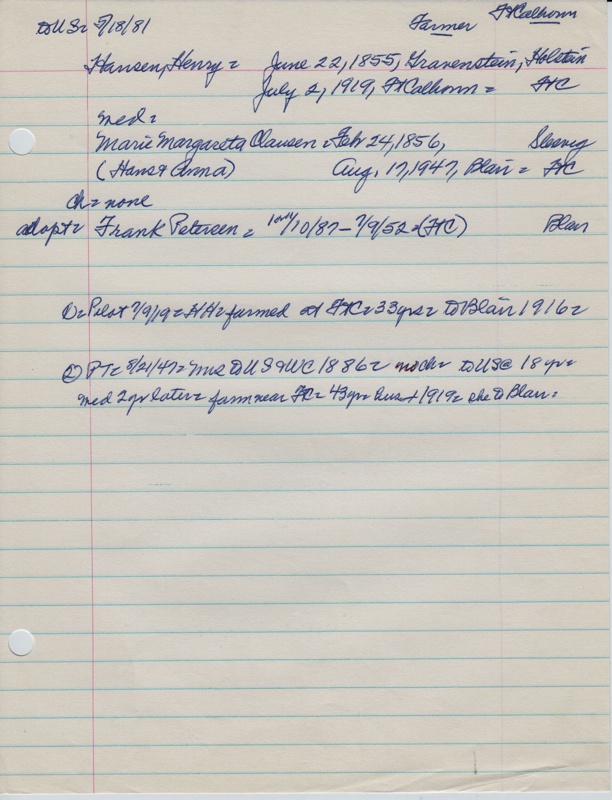 to US = 5/18/81 Farmer FtCalhoun
Hansen, Henry = June 22, 1855, Gravenstein, Holstein
July 2, 1919, FtCalhoun = FtC
med =
Marie Margareta Clausen = Feb 24, 1856, Slesvig
(Hans & Anna) Aug, 17, 1947, Blair = FtC
ch = none
adopt = Frank Petersen = 10/10/87 - 7/9/52 = (FtC) Blair
① = Pilot 7/9/19 = HH = farmed at FtC = 33 yrs = to Blair 1916 =
② PT = 8/21/47 = Mrs to US & WC 1886 = no ch = to US @ 18 yr =
med 2 yr later = farm near FtC = 43 yr = hus + 1919 = she to Blair =